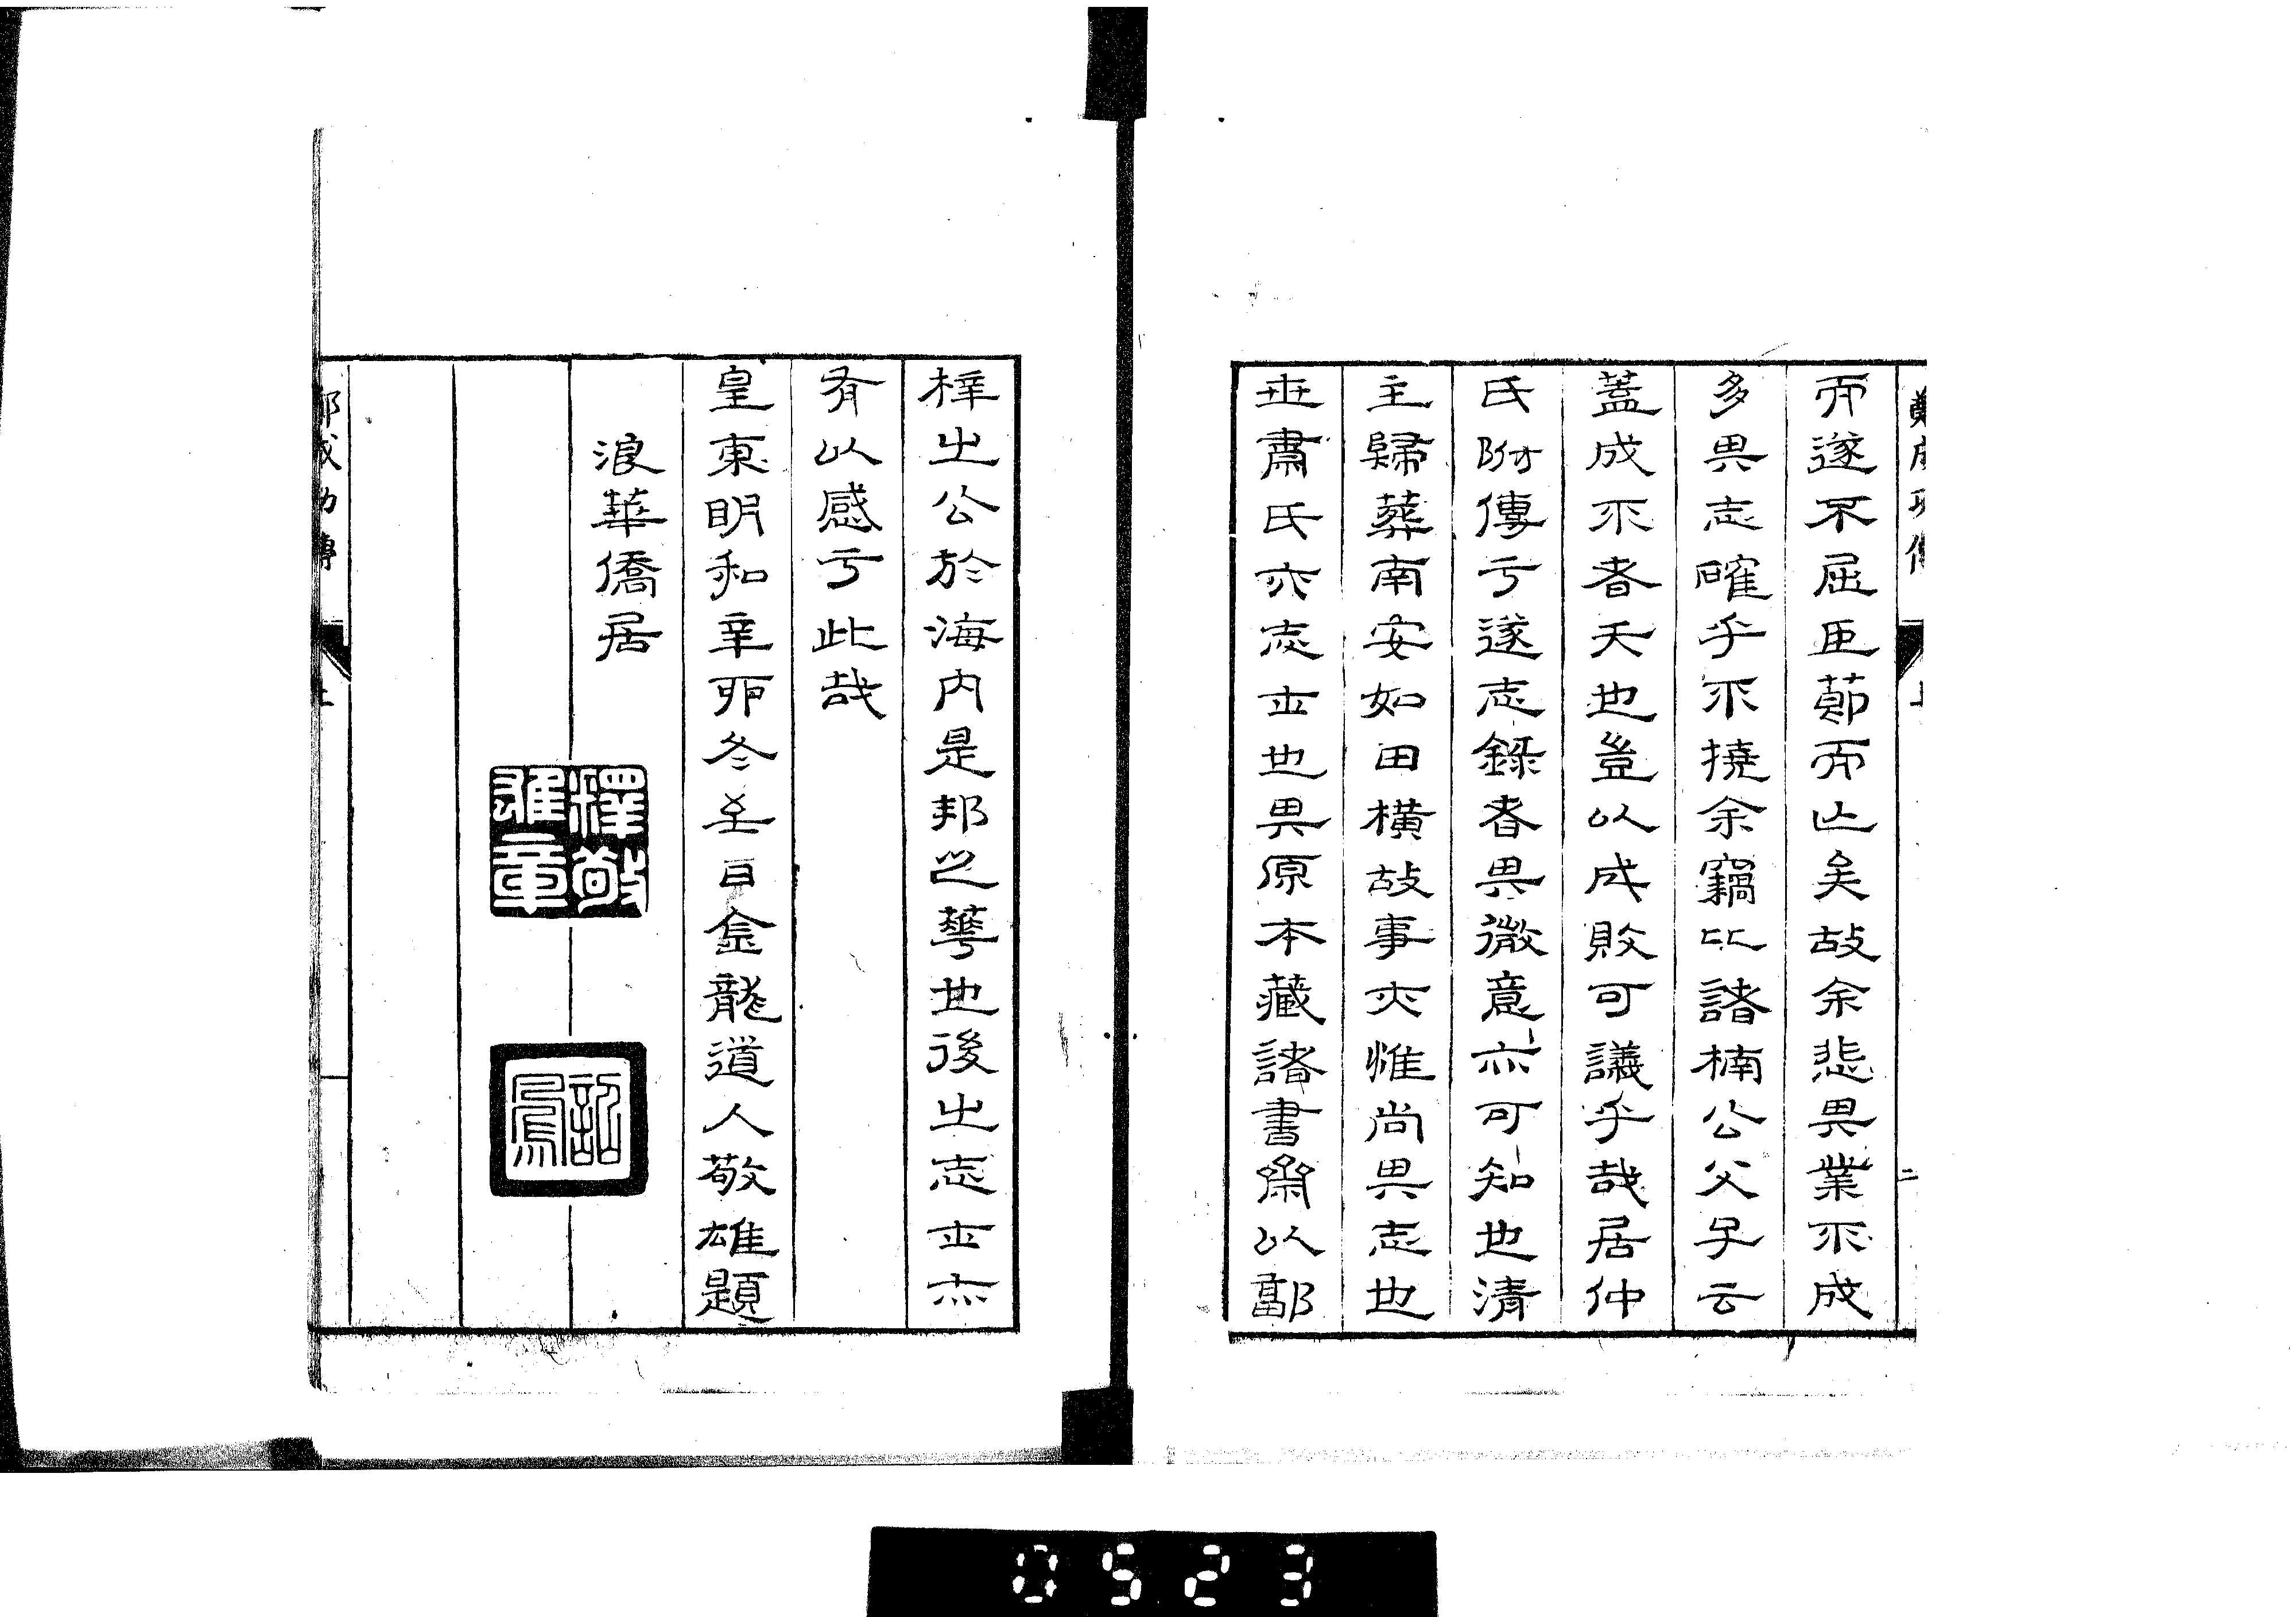 鄭成功傳
上
二
而遂不屈臣節而止矣故余悲其業不成
多其志確乎不撓余竊比諸楠公父子云
蓋成不者天也豈以成敗可議乎哉居仲
氏附傳于遂志錄者其微意亦可知也清
主歸葬南安如田橫故事亦惟尚其志也
世肅氏亦志士也其原本藏諸書齋以鄙
梓之公於海内是邦之華也後之志士亦
有以感于此哉
皇東明和辛卯冬至日金龍道人敬雄題
浪華僑居
釋敬
雄章
鄭成功傳
上
0523